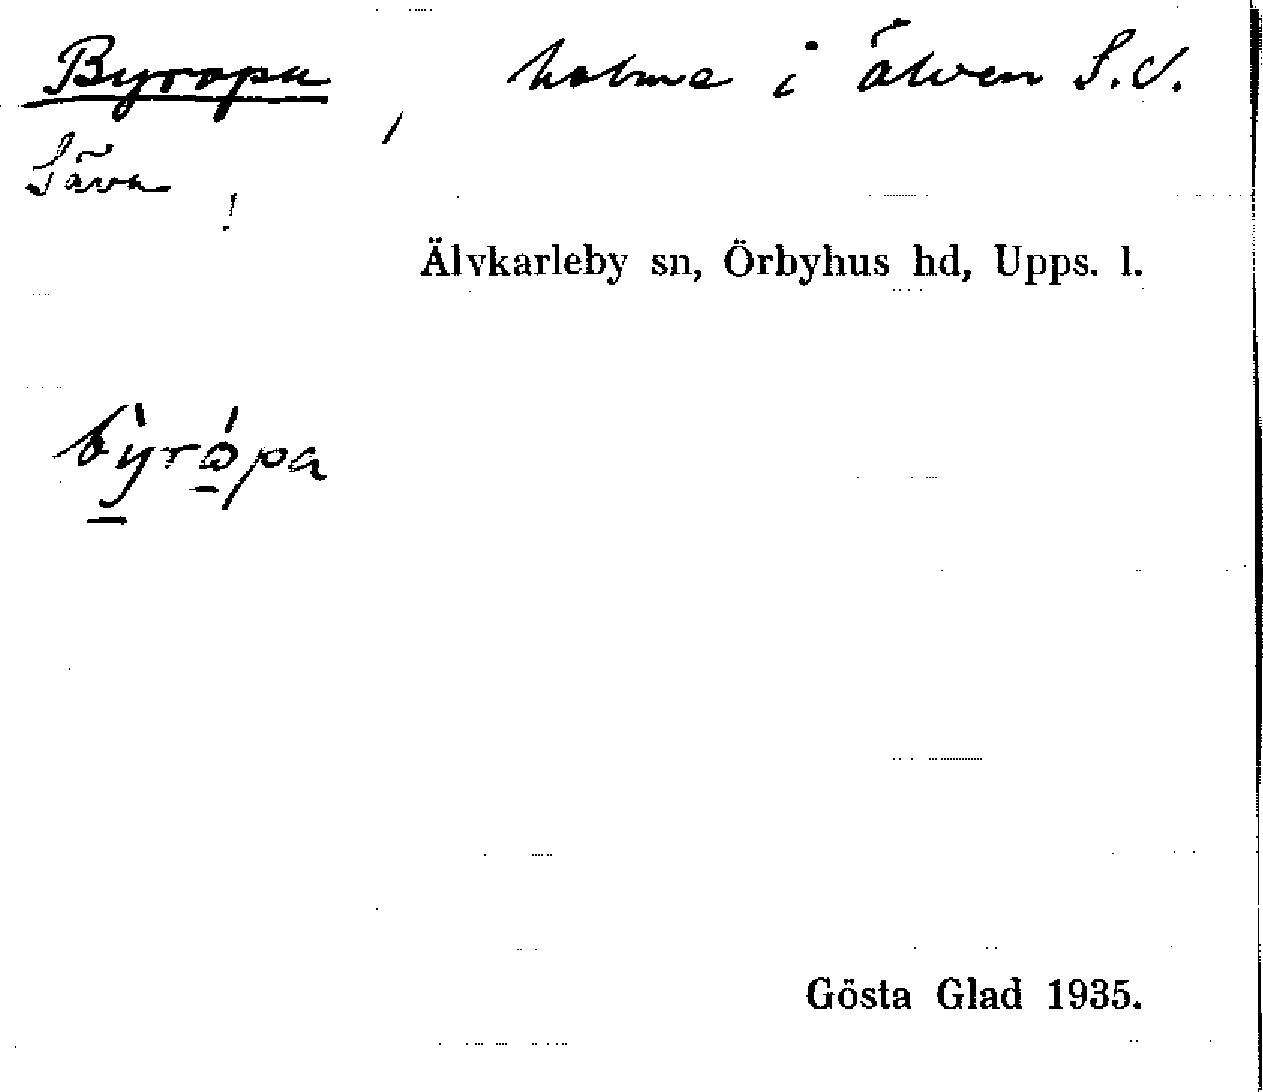 Byropa, holme i älven S.V.
Säva !
Älvkarleby sn, Örbyhus hd, Upps. l.
býrópa
Gösta Glad 1935.